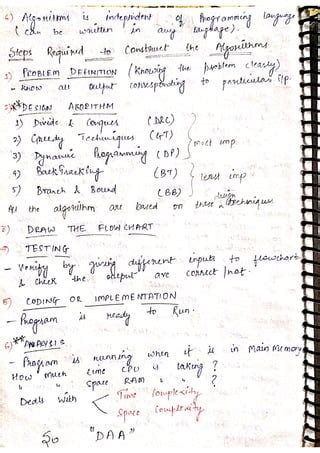 6) Algorithms is independent of Programming language
(can be written in any language).
Steps Required to Construct the Algorithms
1) PROBLEM DEFINITION (Knowing the problem clearly)
- Know all output corresponding to particular i/p.
2)** DESIGN ALGORITHM
1) Divide & Conquer (D&C)
2) Greedy Techniques (GT)
3) Dynamic Programming (DP)
most imp
4) BackTracking (BT)
5) Branch & Bound (BB)
least imp
All the algorithm are based on these design techniques
3) DRAW THE FLOWCHART
4) TESTING
- Verify by giving different inputs to flowchart
& check the output are correct / not.
5) CODING OR IMPLEMENTATION
- Program is ready to Run.
6)** ANALYSIS
- Program is running when it is in Main Memory
How much time CPU is taking ?
" " space RAM " " ?
Deals with Time Complexity
Space Complexity
"DAA"